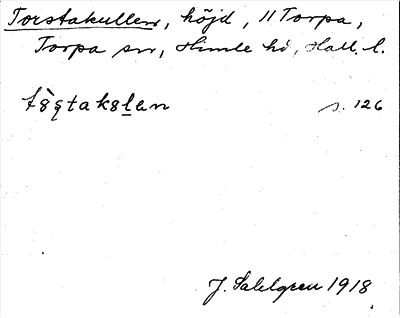 Torstakullen, höjd, 11 Torpa,
Torpa sn, Himle hd, Hall. l.
s. 126
J. Sahlgren 1918